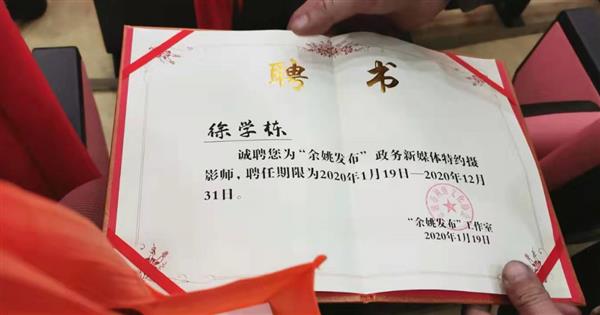 聘 书
徐学栋
诚聘您为“余姚发布”政务新媒体特约摄
影师，聘任期限为2020年1月19日—2020年12月
31日。
“余姚发布”工作室
2020年1月19日